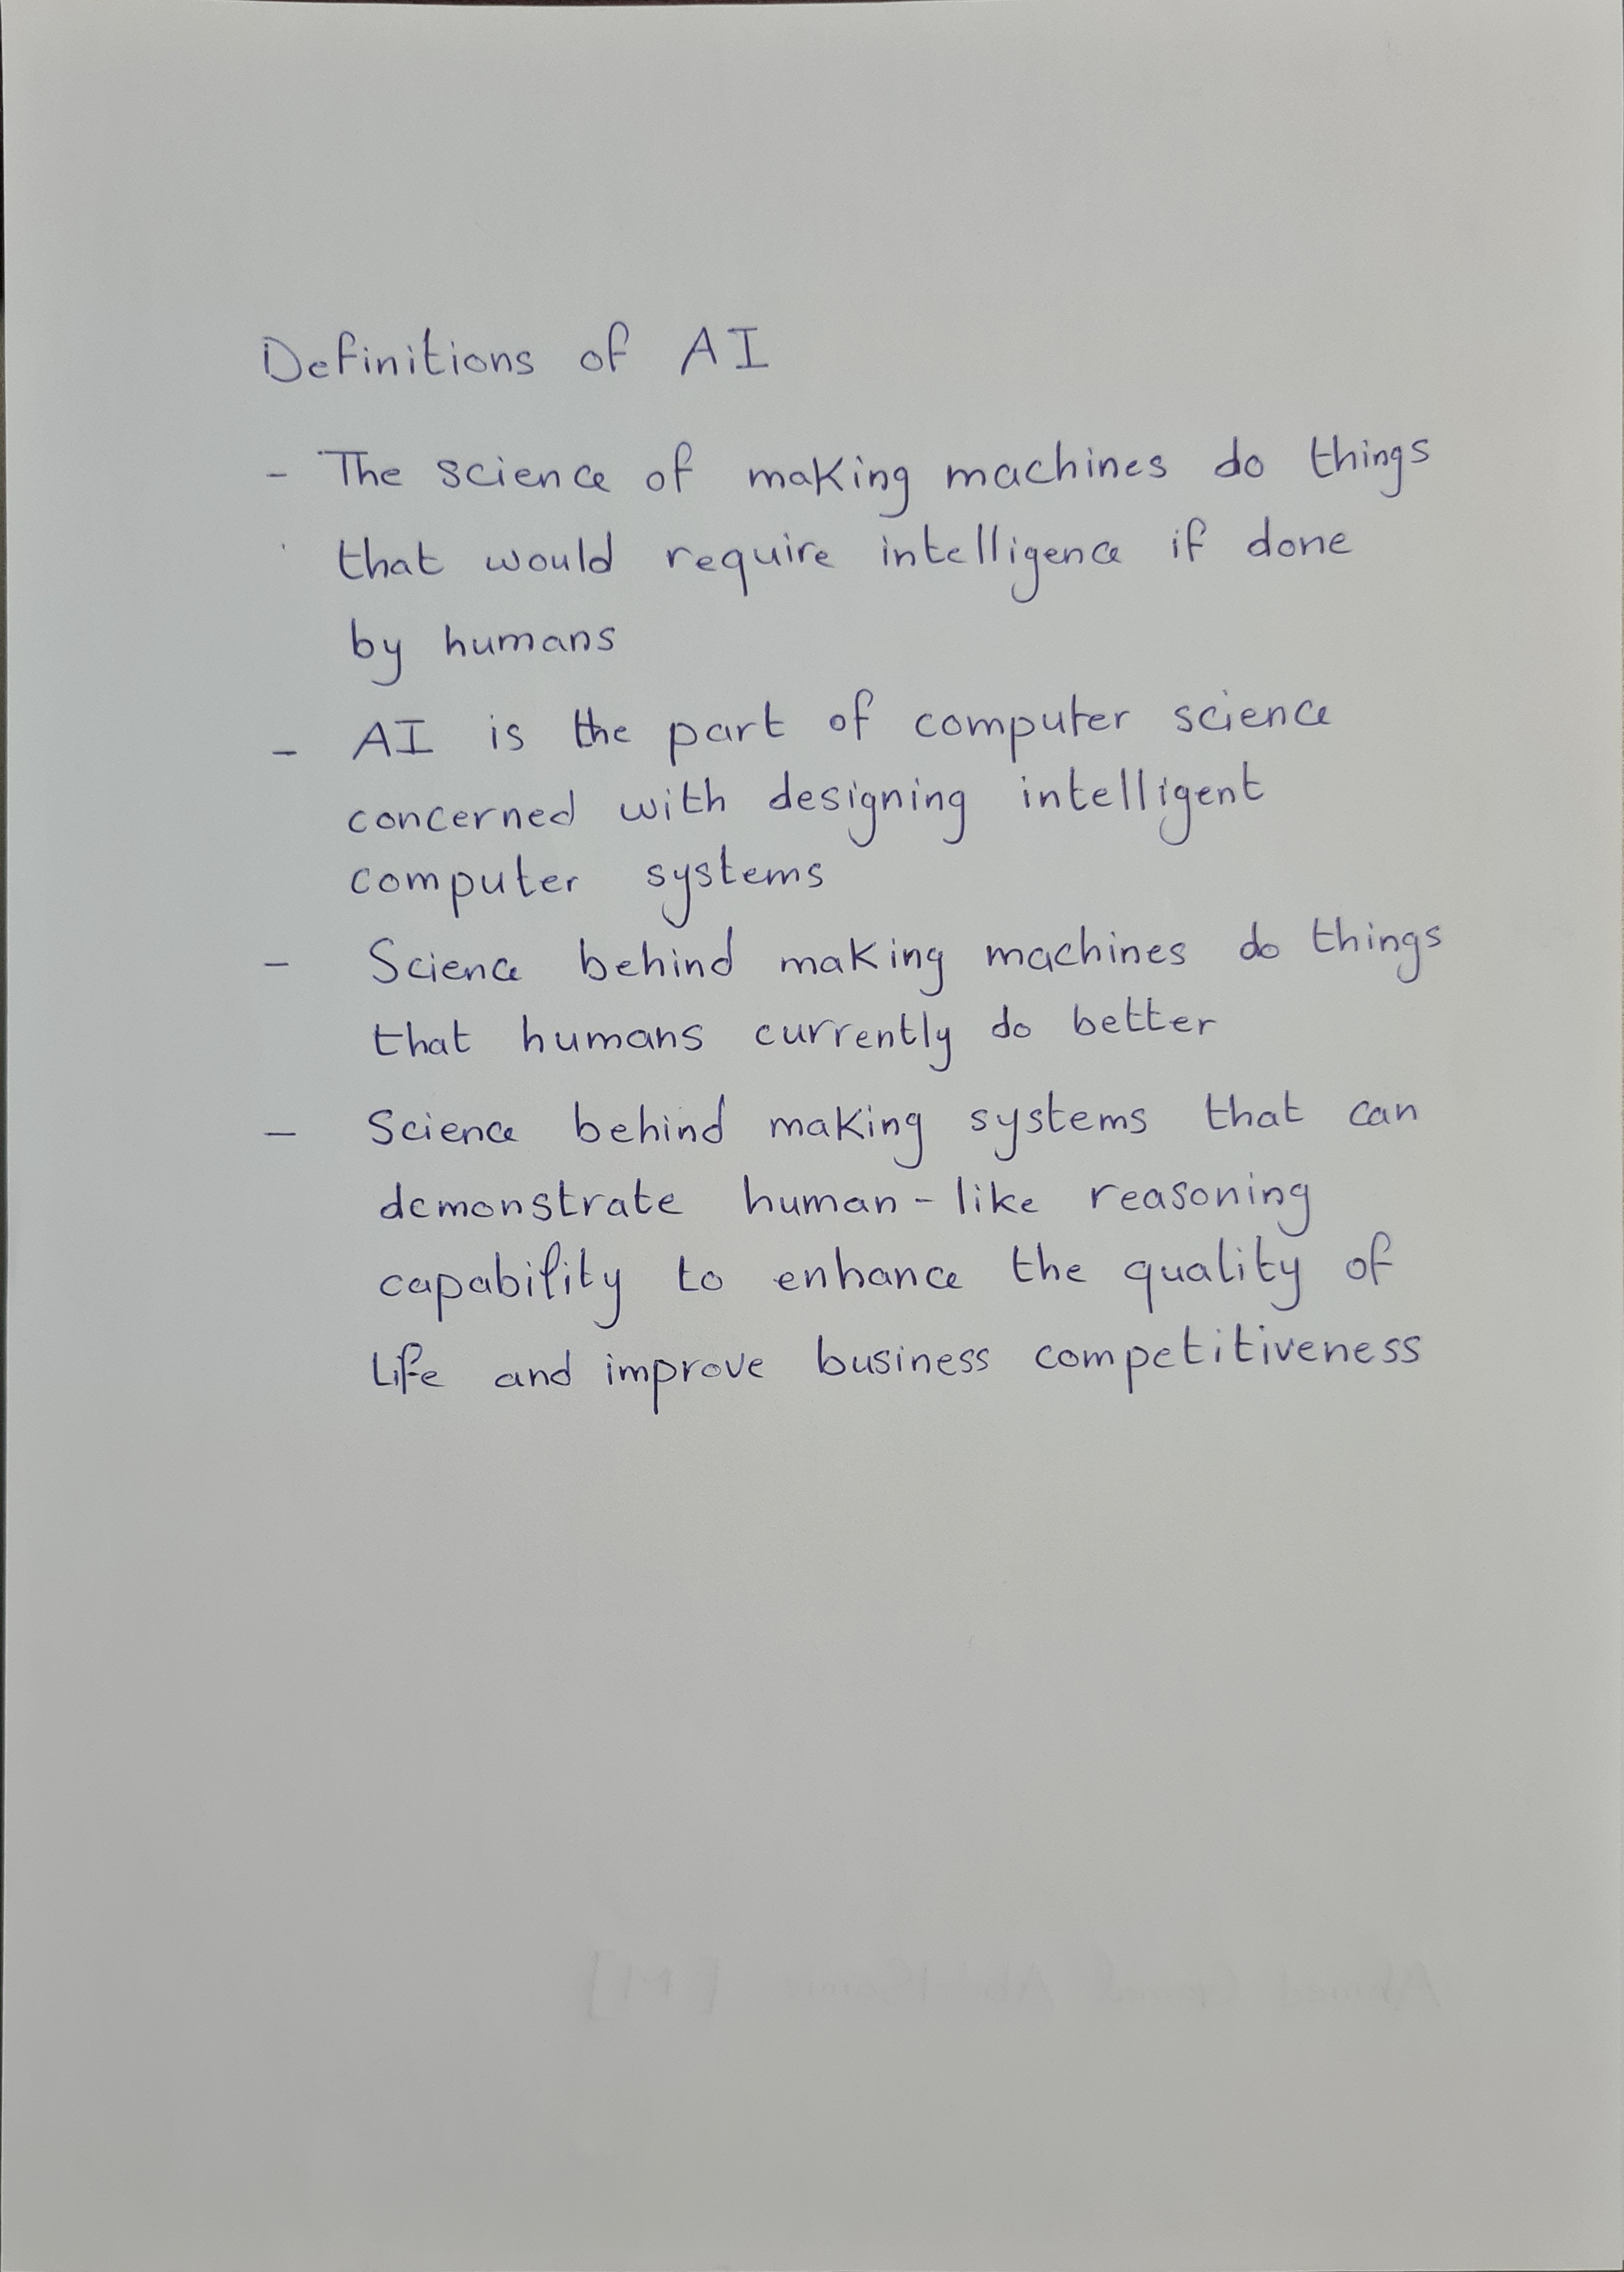 Definitions of AI
- The science of making machines do things
that would require intelligence if done
by humans
- AI is the part of computer science
concerned with designing intelligent
computer systems
- Science behind making machines do things
that humans currently do better
- Science behind making systems that can
demonstrate human-like reasoning
capability to enhance the quality of
Life and improve business competitiveness